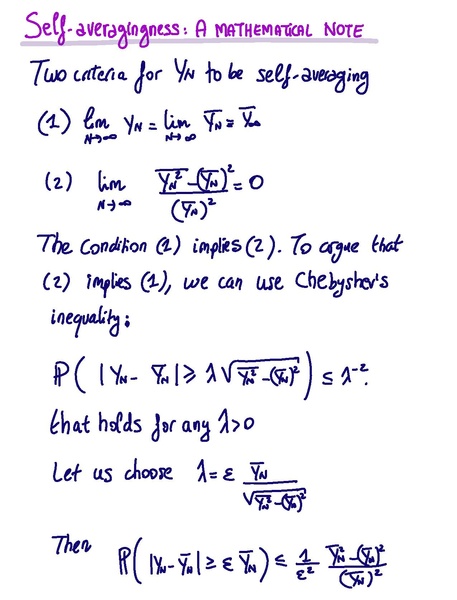 Self-averagingness: A MATHEMATICAL NOTE
Two criteria for Y_N to be self-averaging
(1) lim_{N→∞} Y_N = lim_{N→∞} \overline{Y}_N = \overline{Y}_∞
(2) lim_{N→∞} (\overline{Y_N^2} - (\overline{Y}_N)^2) / (\overline{Y}_N)^2 = 0
The condition (1) implies (2). To argue that
(2) implies (1), we can use Chebyshev's
inequality:
ℙ( |Y_N - \overline{Y}_N| ≥ λ √(\overline{Y_N^2} - (\overline{Y}_N)^2) ) ≤ λ^{-2}.
that holds for any λ>0
Let us choose λ = ε \overline{Y}_N / √(\overline{Y_N^2} - (\overline{Y}_N)^2)
Then ℙ( |Y_N - \overline{Y}_N| ≥ ε \overline{Y}_N ) ≤ 1/ε^2 (\overline{Y_N^2} - (\overline{Y}_N)^2) / (\overline{Y}_N)^2